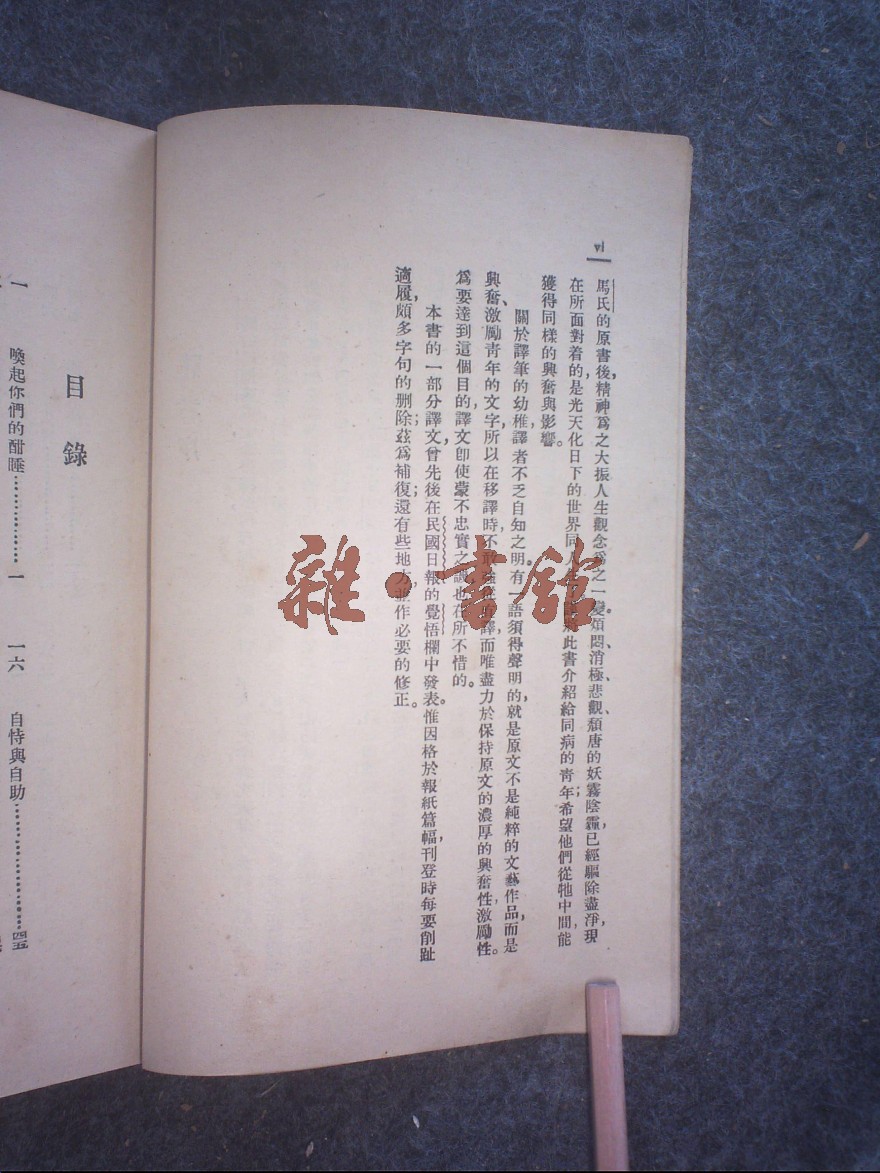 vi
馬氏的原書後，精神爲之大振，人生觀念爲之一變。煩悶、消極、悲觀、頹唐的妖霧陰霾，已經驅除盡淨，現
在所面對着的是光天化日下的世界。同人此書介紹給同病的靑年；希望他們從牠中間能
獲得同樣的興奮與影響。
關於譯筆的幼稚，譯者不乏自知之明。有一語須得聲明的，就是原文不是純粹的文藝作品，而是
興奮、激勵靑年的文字，所以在移譯時，不敢譯，而唯盡力於保持原文的濃厚的興奮性，激勵性。
爲要達到這個目的，譯文卽使蒙不忠實之譏，也在所不惜的。
本書的一部分譯文，曾先後在民國日報的覺悟欄中發表。惟因格於報紙篇幅，刊登時每要削趾
適履，頗多字句的删除；茲爲補復；還有些地方，並作必要的修正。
雜·書館
目錄
一 喚起你們的酣睡……………一
一六 自恃與自助……………四五